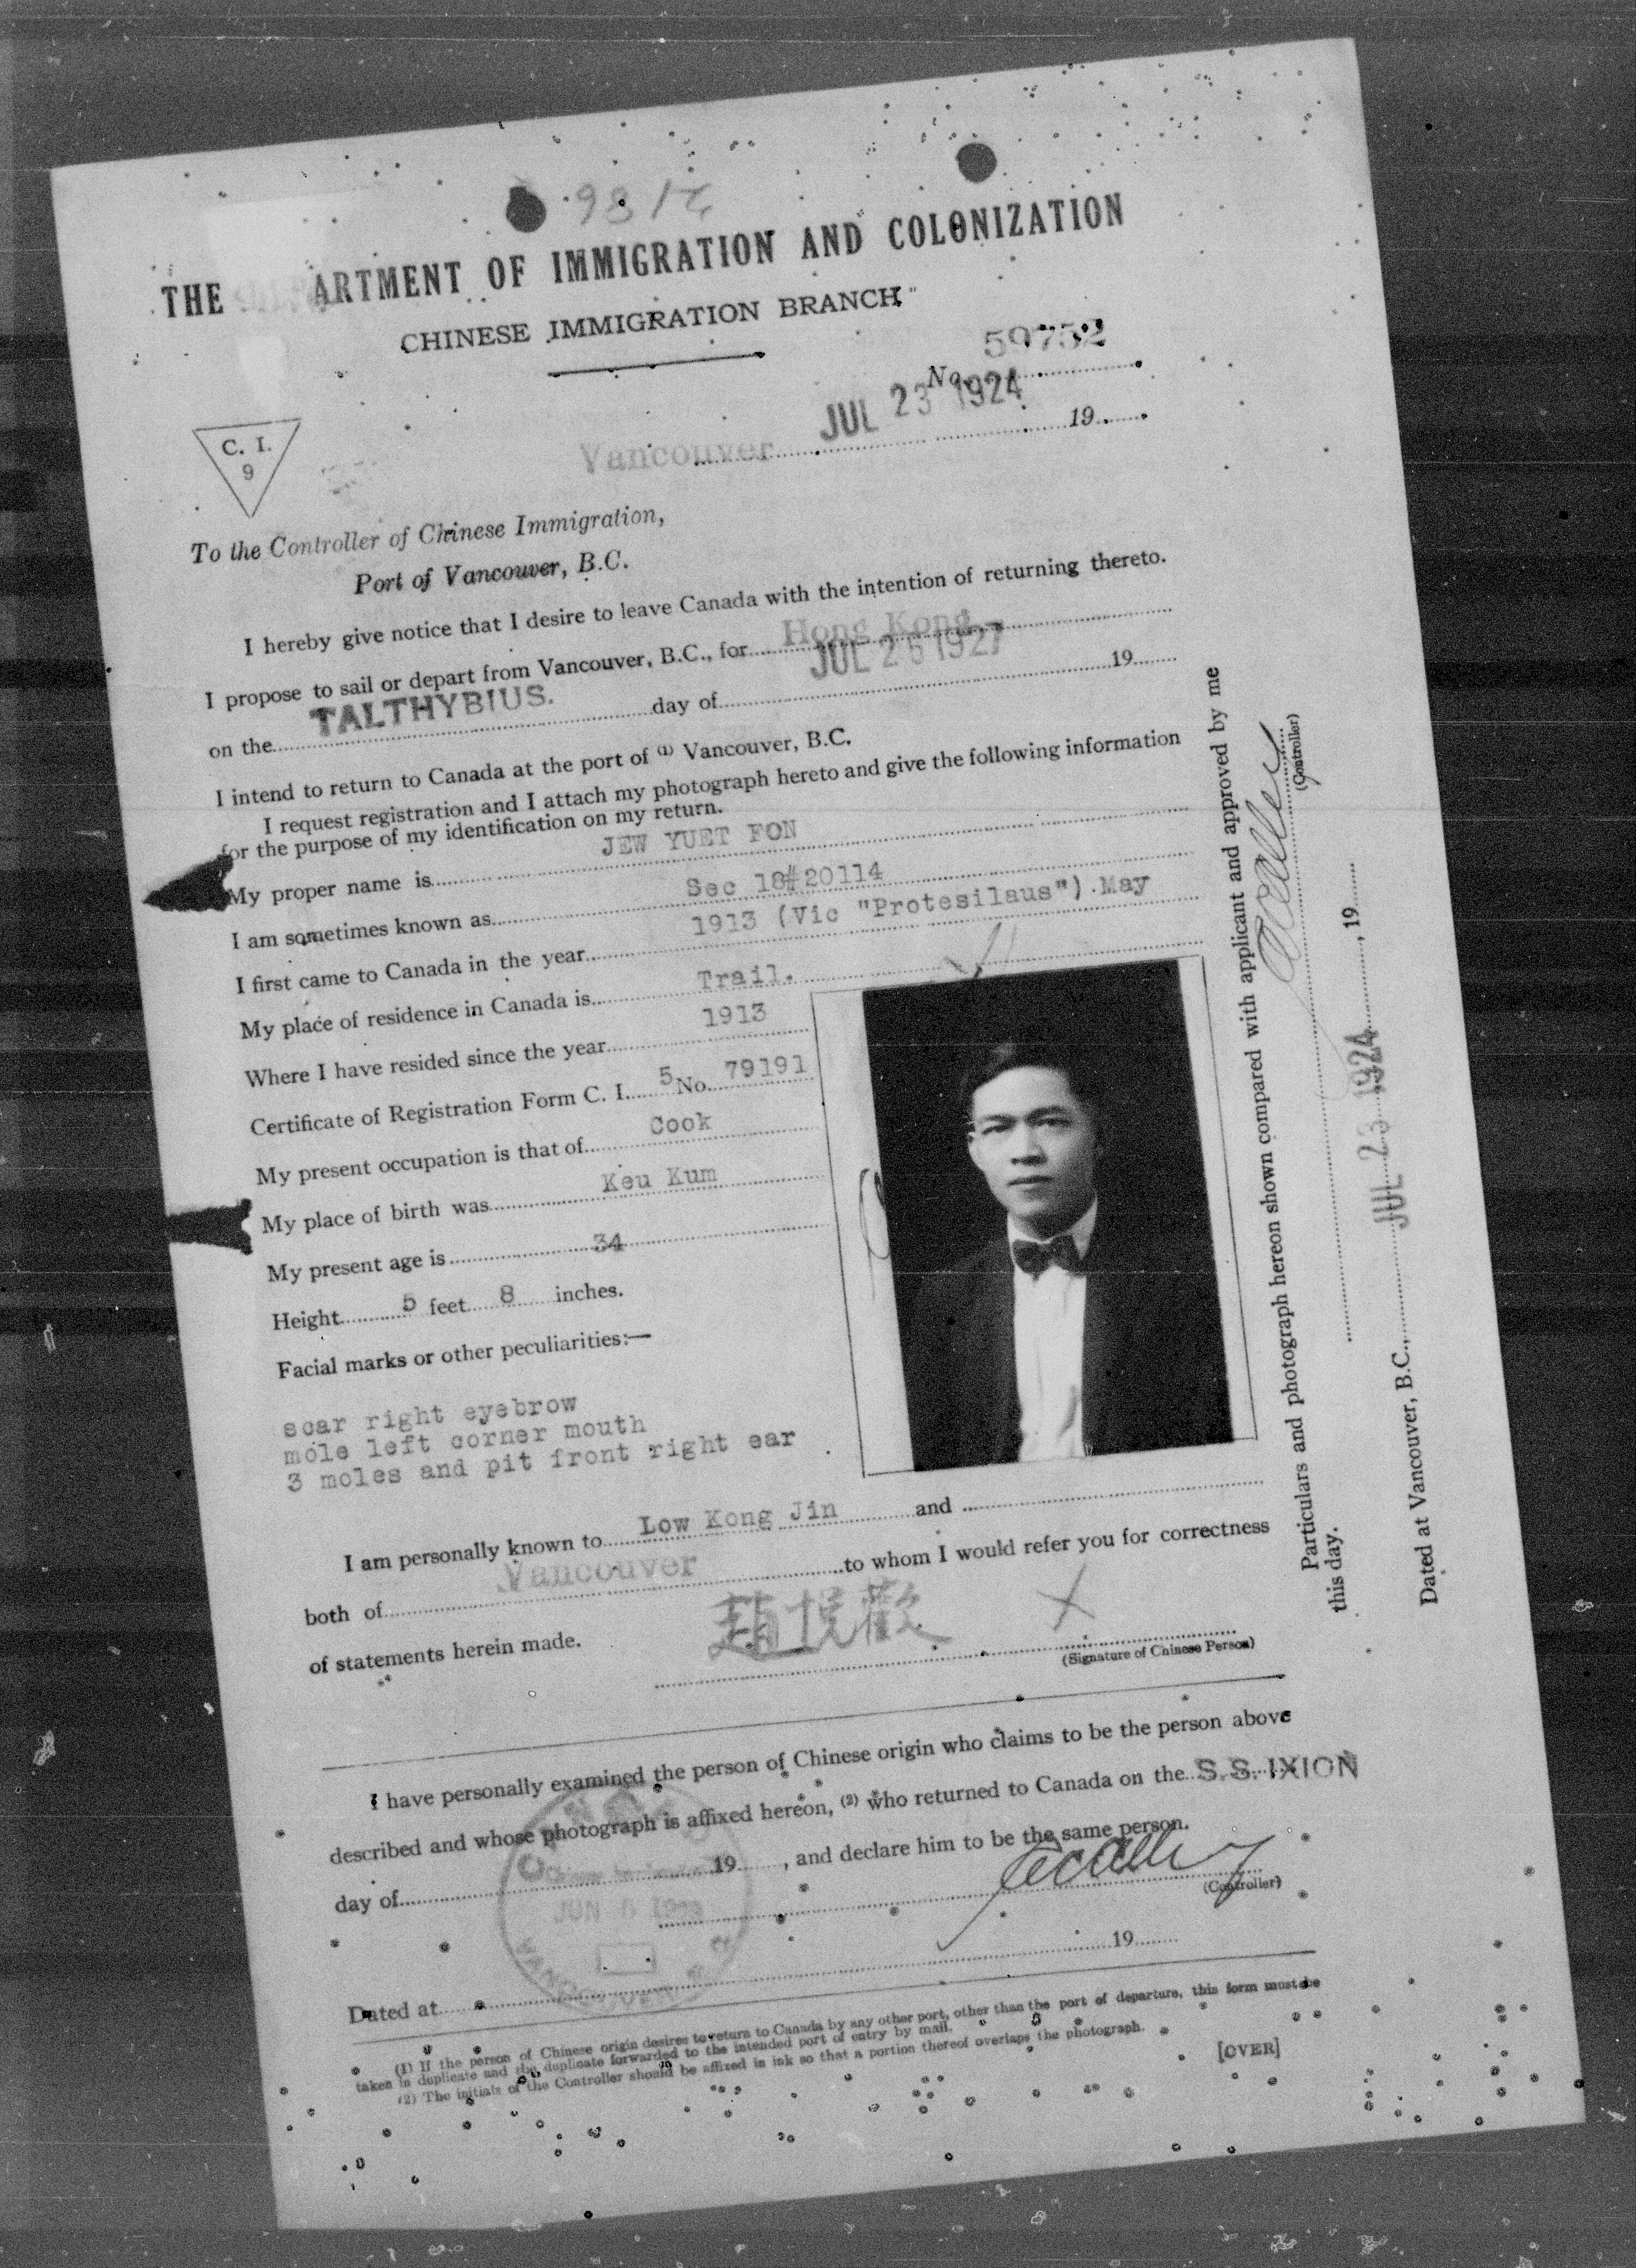 THE ARTMENT OF IMMIGRATION AND COLONIZATION
CHINESE IMMIGRATION BRANCH
No. 59752
Vancouver JUL 23 1924 19
C. I.
9
To the Controller of Chinese Immigration,
Port of Vancouver, B.C.
I hereby give notice that I desire to leave Canada with the intention of returning thereto.
I propose to sail or depart from Vancouver, B.C., for Hong Kong
on the TALTHYBIUS. day of JUL 26 1927 19
I intend to return to Canada at the port of (1) Vancouver, B.C.
I request registration and I attach my photograph hereto and give the following information
for the purpose of my identification on my return.
My proper name is JEW YUET FON
I am sometimes known as Sec 18#20114
I first came to Canada in the year 1913 (Vic "Protesilaus") May
My place of residence in Canada is Trail.
Where I have resided since the year 1913
Certificate of Registration Form C. I. 5 No. 79191
My present occupation is that of Cook
My place of birth was Keu Kum
My present age is 34
Height 5 feet 8 inches.
Facial marks or other peculiarities:—
scar right eyebrow
mole left corner mouth
3 moles and pit front right ear
I am personally known to Low Kong Jin and
both of Vancouver to whom I would refer you for correctness
of statements herein made.
趙悅歡 X
(Signature of Chinese Person)
I have personally examined the person of Chinese origin who claims to be the person above
described and whose photograph is affixed hereon, (2) who returned to Canada on the S.S. IXION
day of 19 , and declare him to be the same person.
(Controller)
JUN
VANCOUVER
Dated at 19
(1) If the person of Chinese origin desires to return to Canada by any other port, other than the port of departure, this form must be
taken in duplicate and the duplicate forwarded to the intended port of entry by mail.
(2) The initials of the Controller should be affixed in ink so that a portion thereof overlaps the photograph.
[OVER]
Particulars and photograph hereon shown compared with applicant and approved by me
this day.
(Controller)
Dated at Vancouver, B.C., JUL 23 1924 , 19